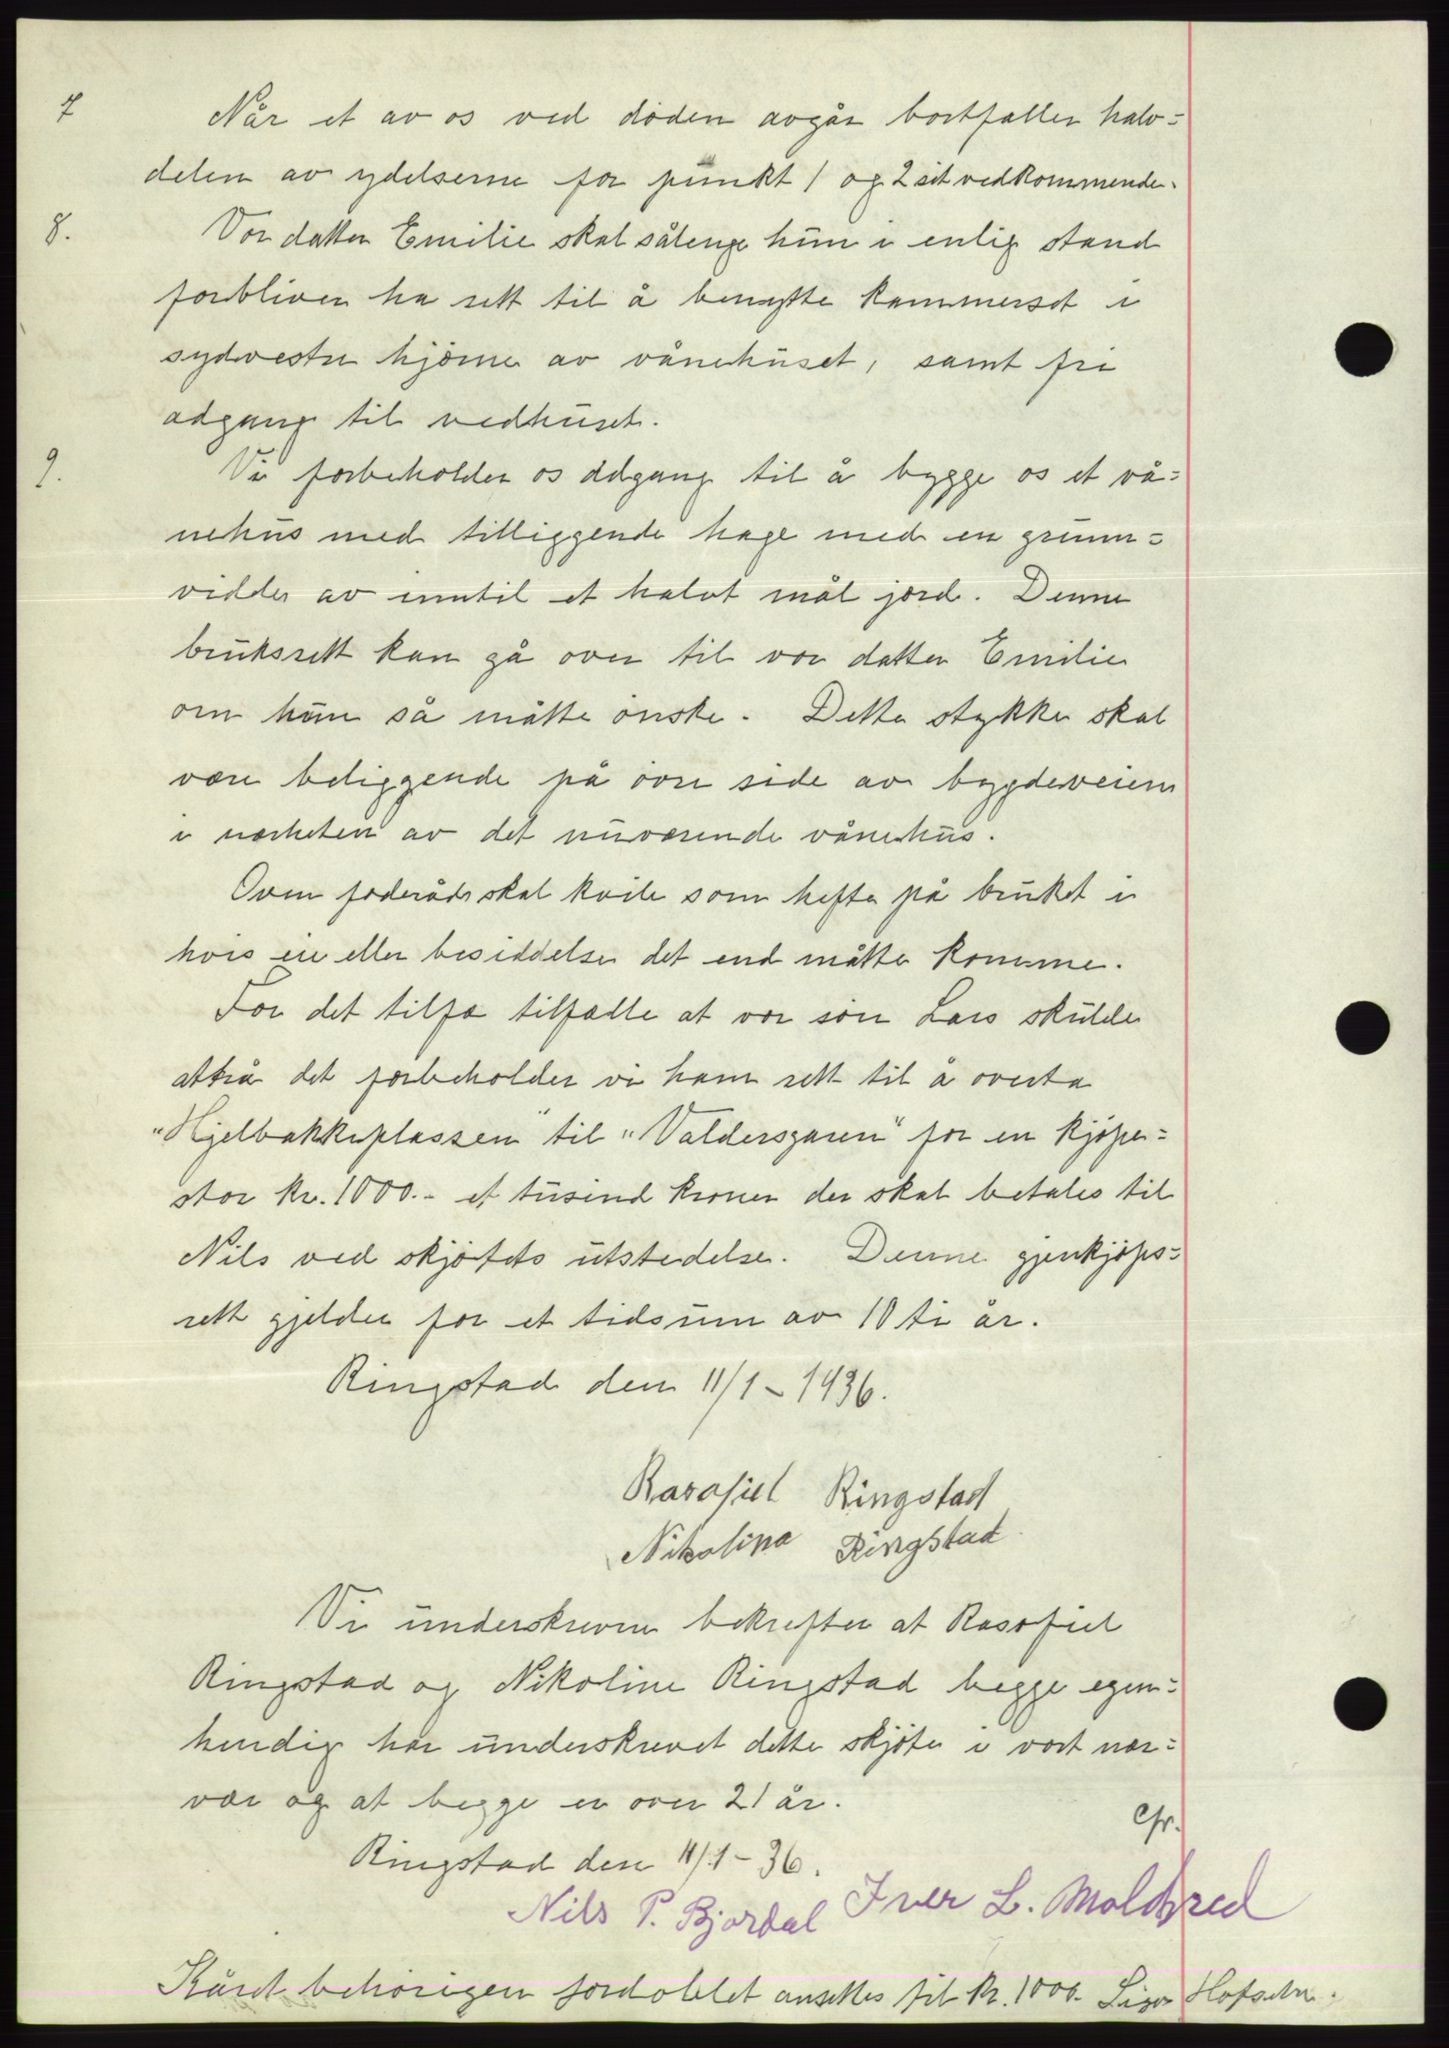 7 Når et av os ved døden avgår bortfaller halv=
delen av ydelserne for punkt 1 og 2 sit vedkommende.
8. Vor datter Emilie skal sålenge hun i enlig stand
forbliver ha rett til å benytte kammerset i
sydvestre hjørne av vånehuset, samt fri
adgang til vedhuset.
9. Vi forbeholder os adgang til å bygge os et vå=
nehus med tilliggende hage med en grunn=
vidde av inntil et halvt mål jord. Denne
bruksrett kan gå over til vor datter Emilie
om hun så måtte ønske. Dette stykke skal
være beliggende på øvre side av bygdeveien
i nærheten av det nuværende vånehus.
Oven føderåd skal kvile som hefte på bruket i
hvis eie eller besiddelse det end måtte komme.
For det tilfæ tilfælle at vor søn Lars skulde
attrå det forbeholder vi ham rett til å overta
"Hjelbakkeplassen" til "Valdersgaren" for en kjøpe=
stor kr. 1000.- et tusind kroner der skal betales til
Nils ved skjøtets utstedelse. Denne gjenkjøps=
rett gjelder for et tidsrum av 10 ti år.
Ringstad den 11/1 - 1936.
Rasafiel Ringstad
Nikolina Ringstad
Vi underskrevne bekrefter at Rasofiel
Ringstad og Nikoline Ringstad begge egen=
hendig har underskrevet dette skjøte i vort nær=
vær og at begge er over 21 år.
Ringstad den 11/1 - 36.
Nils P. Bjordal Iver L. Moldskred
Kåret behørigen fordoblet ansettes til kr. 1000.-